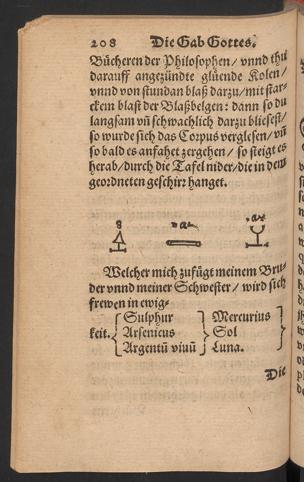 208 Die Gab Gottes.
Bücheren der Philosophen / vnnd thů
darauff angezündte glüende Kolen /
vnnd von stundan blaß darzu / mit star-
ckem blast der Blaßbelgen: dann so du
langsam vñ schwachlich darzu bliesest /
so wurde sich das Corpus verglesen / vñ
so bald es anfahet zergehen / so steigt es
herab / durch die Tafel nider / die in dem
geordneten geschirr hanget.
Welcher mich zufügt meinem Bru-
der vnnd meiner Schwester / wird sich
frewen in ewig-
Sulphur Mercurius
keit. Arsenicus Sol
Argentū viuū Luna.
Die